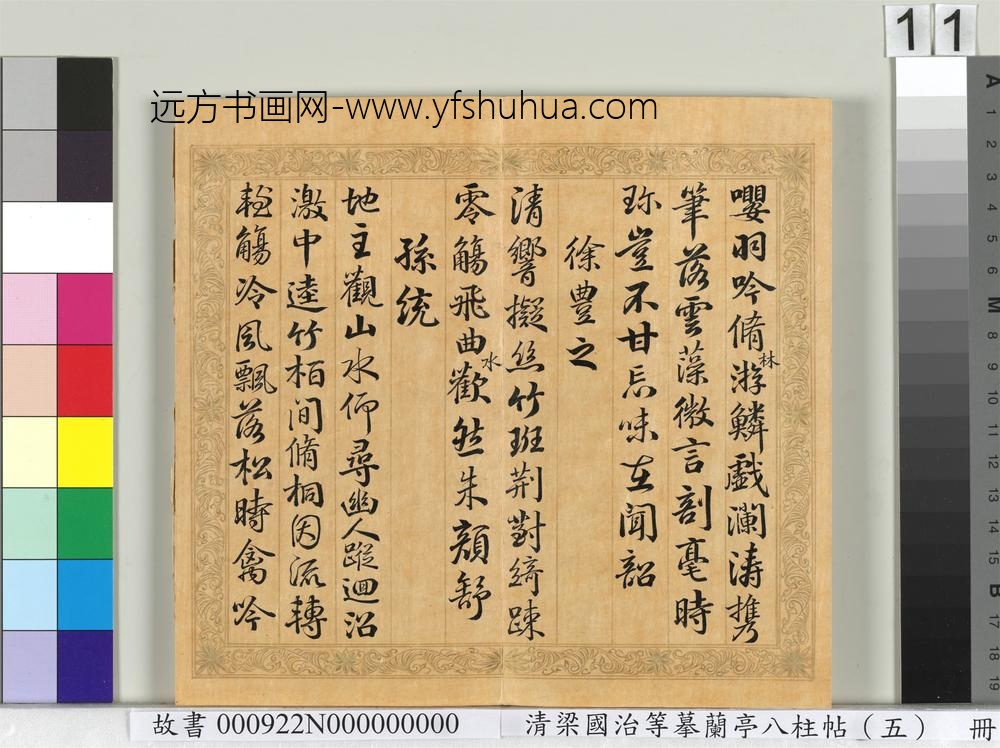 11
远方书画网-www.yfshuhua.com
嚶羽吟脩林游鱗戲瀾濤攜
筆落雲藻微言剖毫時
珍豈不甘忘味在聞韶
徐豊之
清響擬絲竹班荊對綺疎
零觴飛曲水歡然朱顏舒
孫統
地主觀山水仰尋幽人蹤迴沼
激中逵竹栢間脩桐因流轉
輕觴冷風飄落松時禽吟
A 1 2 3 4 5 6 M 8 9 10 11 12 13 14 15 B 17 18 19
故書 000922N000000000
清梁國治等摹蘭亭八柱帖（五） 冊